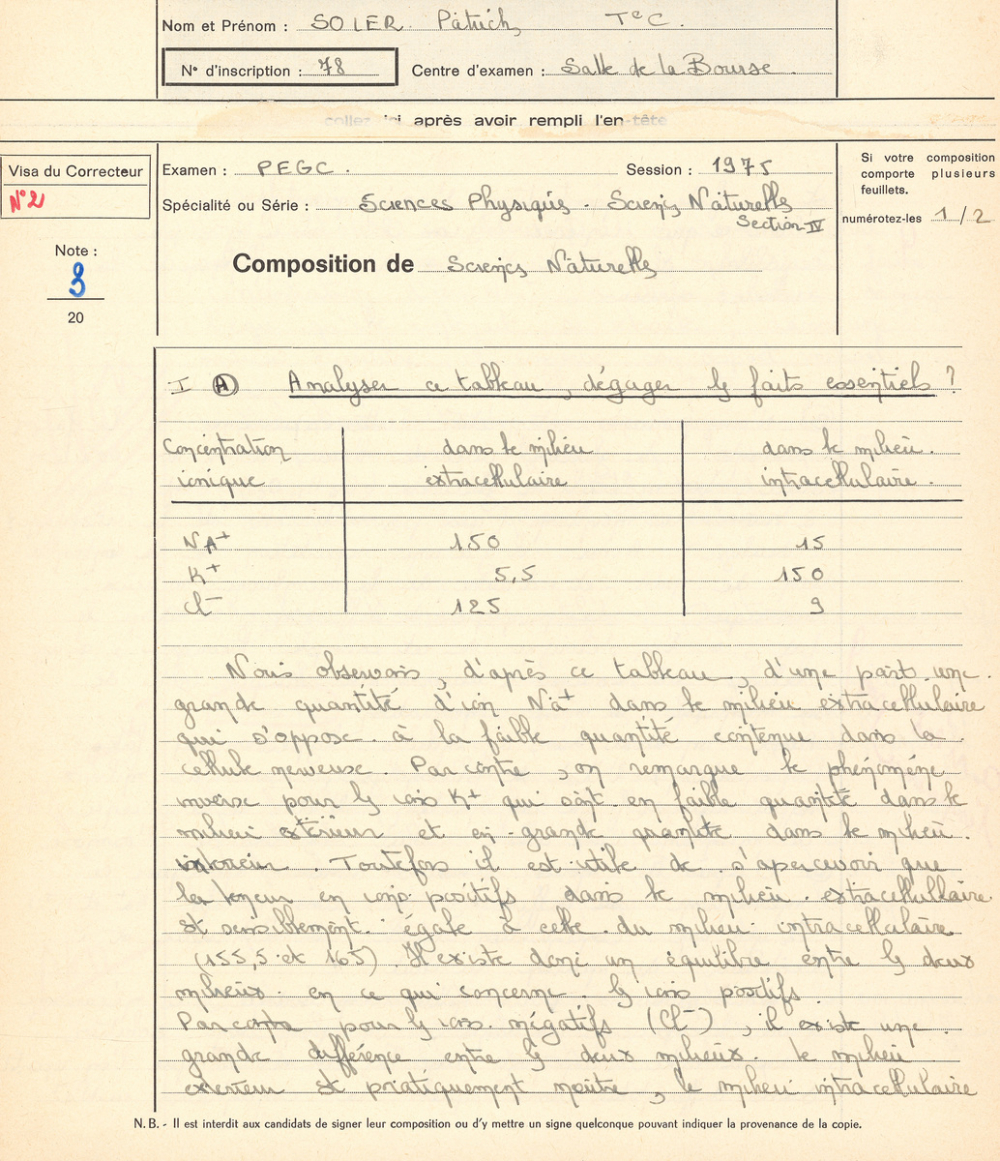 Nom et Prénom : SOLER Patrick TleC.
N° d'inscription : 78 Centre d'examen : Salle de la Bourse.
collez ici après avoir rempli l'en-tête
Visa du Correcteur
N°2
Note :
3
20
Examen : PEGC. Session : 1975
Spécialité ou Série : Sciences Physiques - Sciences Naturelles
Section IV
Composition de Sciences Naturelles
Si votre composition
comporte plusieurs
feuillets.
numérotez-les 1/2
I A Analyser ce tableau, dégager les faits essentiels ?
Concentration dans le milieu dans le milieu.
ionique extracellulaire intracellulaire.
NA+ 150 15
K+ 5,5 150
Cl- 125 9
Nous observons, d'après ce tableau, d'une part une
grande quantité d'ion Na+ dans le milieu extracellulaire
qui s'oppose à la faible quantité contenue dans la
cellule nerveuse. Par contre, on remarque le phénomène
inverse pour les ions K+ qui sont en faible quantité dans le
milieu extérieur et en grande quantité dans le milieu
intérieur. Toutefois il est utile de s'apercevoir que
la teneur en ions positifs dans le milieu extracellullaire
est sensiblement égale à celle du milieu intracellulaire
(155,5 et 165). Il existe donc un équilibre entre les deux
milieux en ce qui concerne les ions positifs.
Par contre pour les ions négatifs (Cl-), il existe une
grande différence entre les deux milieux. le milieu
extérieur est pratiquement neutre, le milieu intracellulaire
N. B. - Il est interdit aux candidats de signer leur composition ou d'y mettre un signe quelconque pouvant indiquer la provenance de la copie.